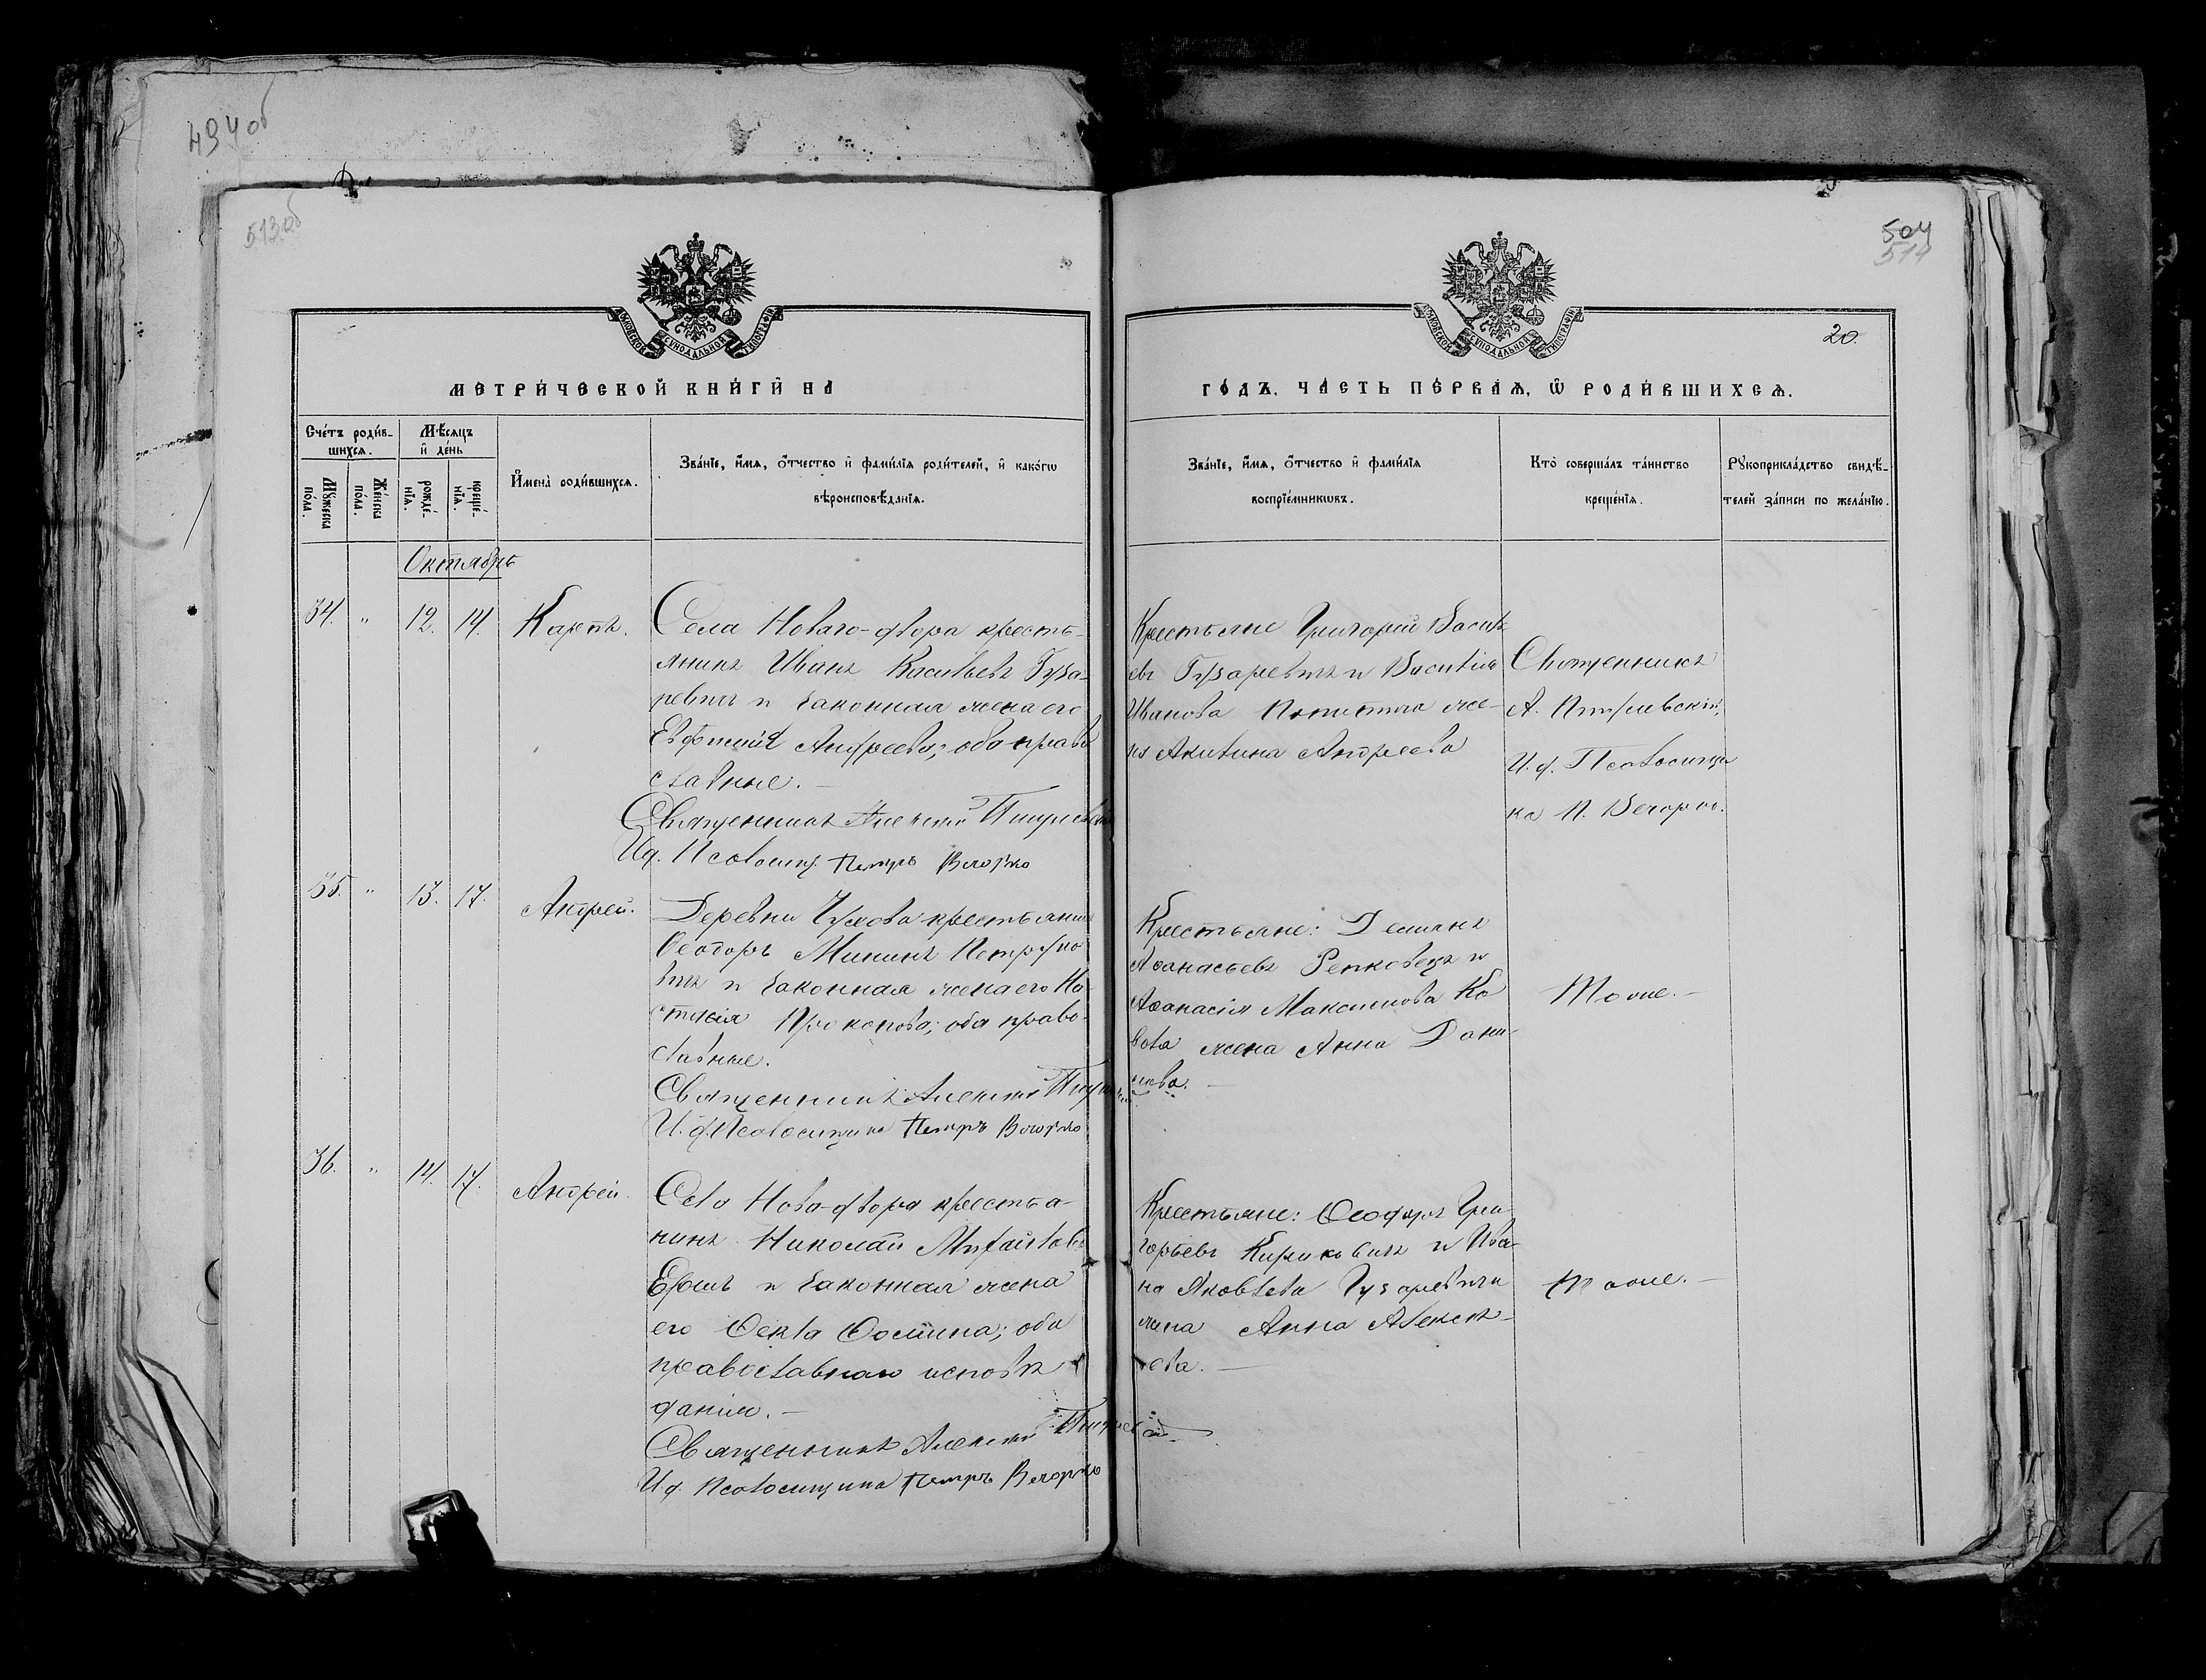 494об
513об
504
514
МОСКОВСКОЙ СУНОДАЛЬНОЙ ТИПОГРАФІИ
МОСКОВСКОЙ СУНОДАЛЬНОЙ ТИПОГРАФІИ
20.
МЕТРИ́ЧЕСКОЙ КНИ́ГИ НА
ГО́ДЪ, ЧА́СТЬ ПЕ́РВАѦ, Ѿ РОДИ́ВШИХСѦ.
Сче́тъ роди́в-
шихсѧ.
Мѣ́сѧцъ
и҆ де́нь
Мꙋ́жеска
по́ла.
Же́нска
по́ла.
рожде́-
нїѧ.
креще́-
нїѧ.
И҆мена̀ роди́вшихсѧ.
Зва́нїе, и҆́мѧ, ѻ҆́тчество и҆ фами́лїѧ роди́телей, и҆ како́гѡ
вѣроисповѣ́данїѧ.
Зва́нїе, и҆́мѧ, ѻ҆́тчество и҆ фами́лїѧ
воспрїе́мникѡвъ.
Кто̀ соверша́лъ та́инство
креще́нїѧ.
Рꙋкоприкла́дство свидѣ́-
телей за́писи по жела́нїю.
Октябрь
34. " 12. 14. Карпъ.
Села Новаго-двора кресть-
янинъ Иванъ Васильевъ Гуза-
ревичъ и законная жена его
Евфимія Андреева; оба право
славные.
Священникъ Алексій
И.д. Псаломщ. Петръ Вечорко
Крестьяне Григорій Василь
евъ Гузаревичъ и Василія
Иванова жe-
на Акилина Андреева
Священникъ
А.
И. д. Псаломщи
ка П. Вечорко.
35. " 13. 17. Андрей.
Деревни крестьянинъ
Ѳеодоръ Мининъ
вичъ и законная жена его На
стасія Прокопова; оба право-
славные.
Священникъ Алексій
И. д. Псаломщика Петръ Вечорко
Крестьяне: Демянъ
Аѳанасьевъ и
Аѳанасія Максимова Ко
вала жена Анна Дани-
лова.
Тоже.
36. " 14. 17. Андрей.
Села Нова-двора крестья-
нинъ Николай Михайловъ
Ершъ и законная жена
его Ѳекла Ѳомина; оба
православнаго исповѣ
данія.
Священникъ Алексій
И.д. Псаломщика Петръ Вечорко
Крестьяне: Ѳеодоръ Гри-
горьевъ и Ива-
на Яковлева Гузаревича
жена Анна Алексѣ-
ева.
Тоже.